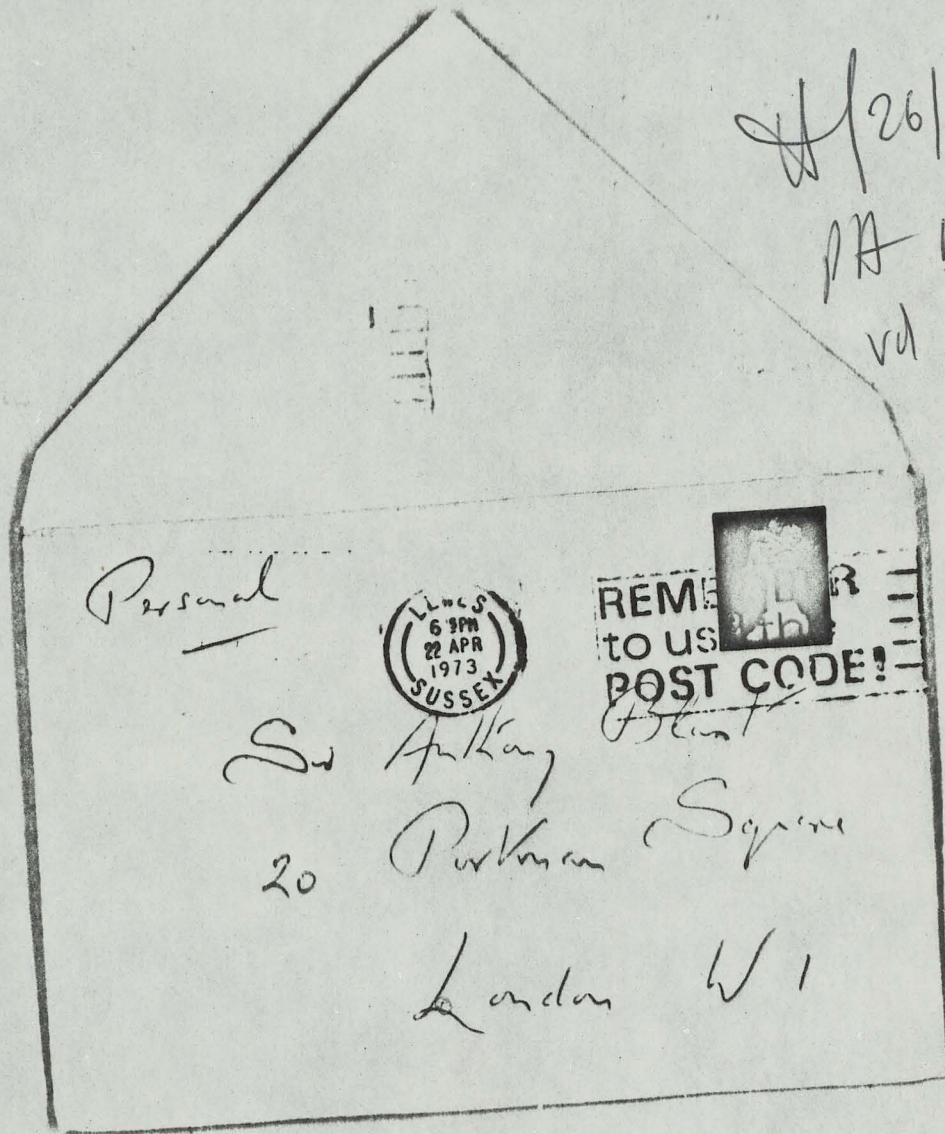 26
PA
vd
Personal
LEWES
6 PM
22 APR
1973
SUSSEX
REMEMBER
to us
POST CODE!
Sir Anthony Blunt
20 Portman Square
London W 1